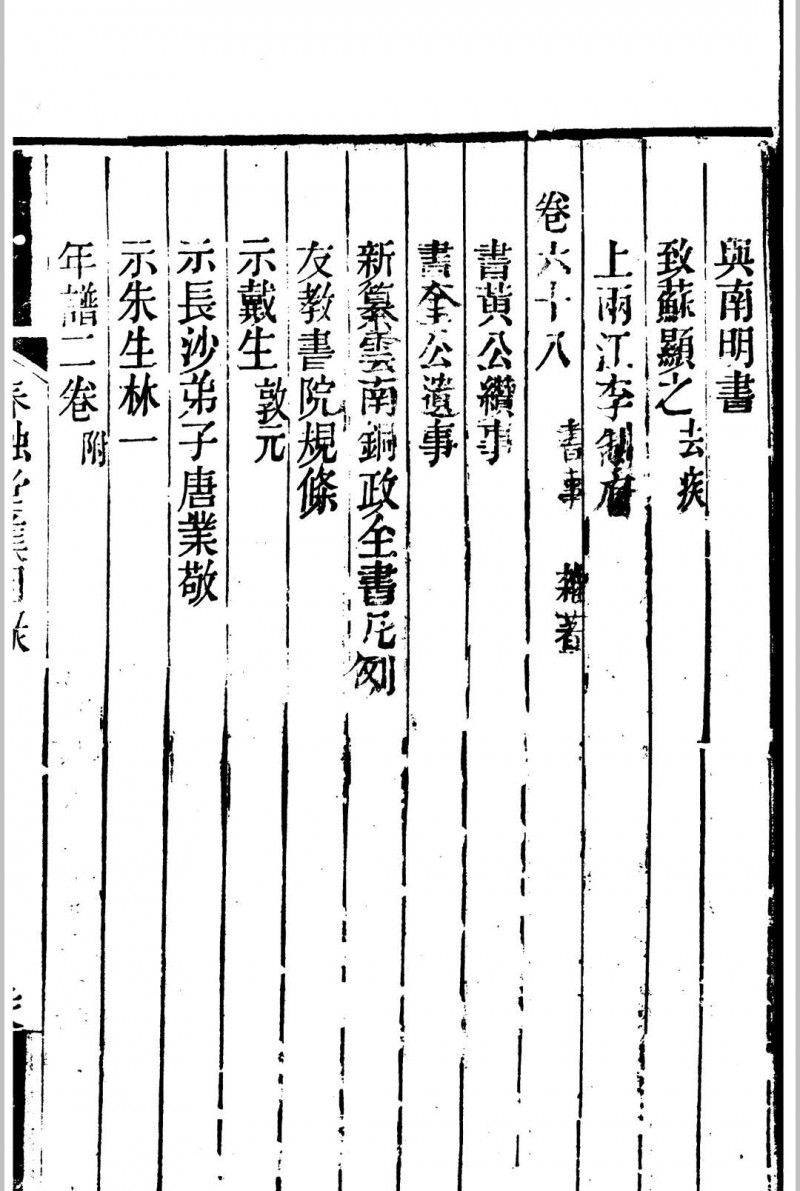 與南明書
致蘇顯之去疾
上兩江李制府
卷六十八 書事 雜著
書黃公纘事
書全公遺事
新纂雲南銅政全書凡例
友教書院規條
示戴生敦元
示長沙弟子唐業敬
示朱生林一
年譜二卷附
春融堂集目錄